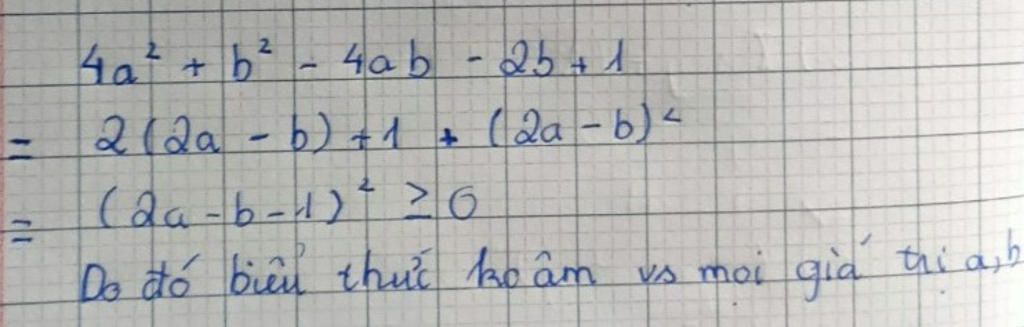 4a² + b² - 4ab - 2b + 1
= 2(2a - b) + 1 + (2a - b)²
= (2a - b - 1)² ≥ 0
Do đó biểu thức ko âm vs mọi giá trị a,b